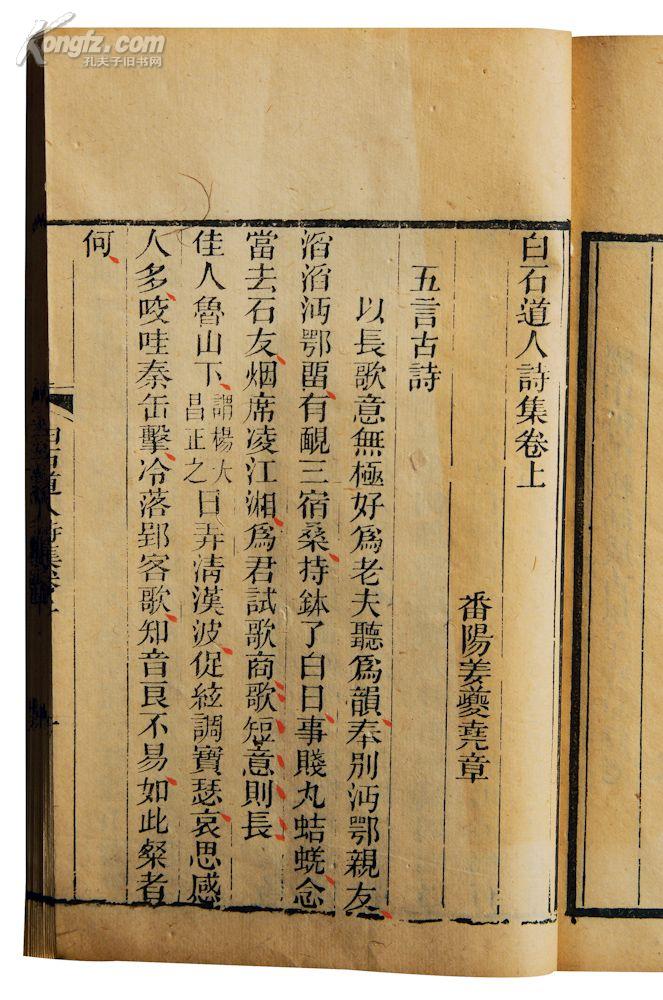 Kongfz.com
孔夫子旧书网
白石道人詩集卷上
番陽姜夔堯章
五言古詩
以長歌意無極好爲老夫聽爲韻奉別沔鄂親友
滔滔沔鄂畱有靦三宿桑持鉢了白日事賤丸蛣蜣念
當去石友烟席凌江湘爲君試歌商歌短意則長
佳人魯山下謂楊大昌正之日弄清漢波促絃調寶瑟哀思感
人多咬哇秦缶擊冷落郢客歌知音良不易如此粲者
何
白石道人詩集